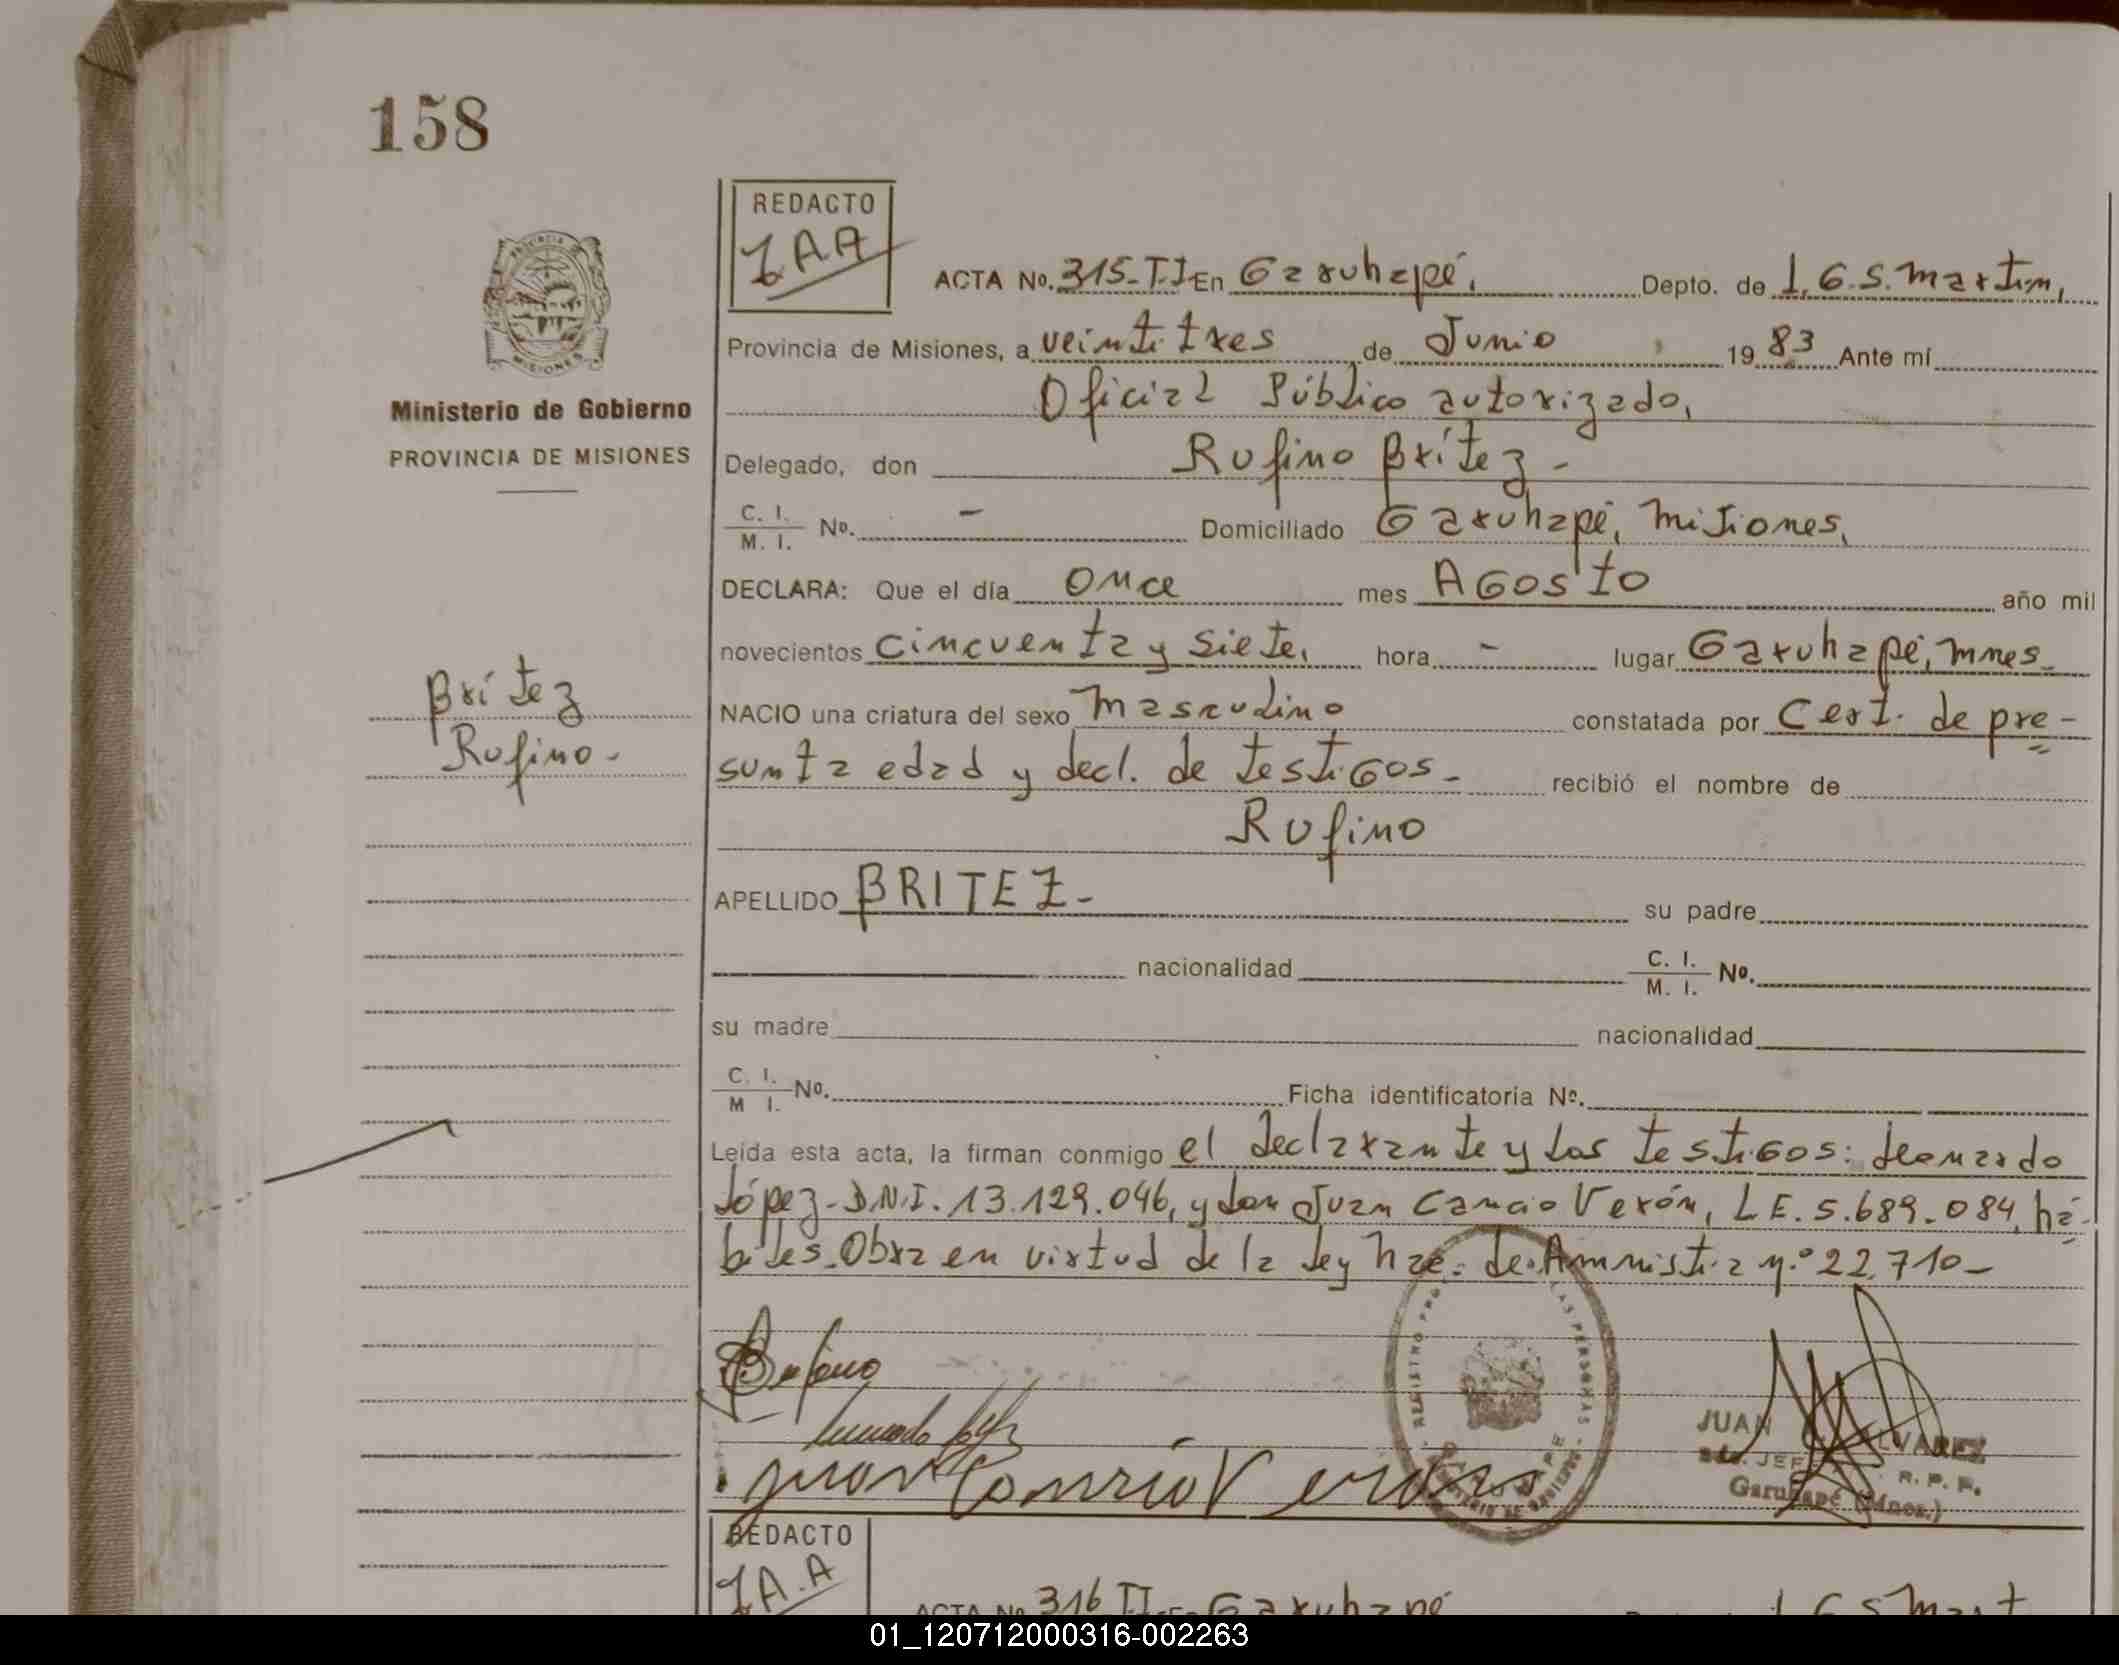 158
REDACTO
JAA
ACTA No. 315-T.I En Garuhapé, Depto. de L.G.S.Martin,
Provincia de Misiones, a veintitres de Junio 19 83 Ante mí
Oficial Público autorizado,
PROVINCIA DE MISIONES
Ministerio de Gobierno
PROVINCIA DE MISIONES
Delegado, don Rufino Brítez -
C. I. / M. I. No. - Domiciliado Garuhapé, Misiones,
DECLARA: Que el día once mes AGOSTO año mil
novecientos cincuenta y siete, hora - lugar Garuhapé, Mnes-
Brítez
Rufino-
NACIO una criatura del sexo Masculino constatada por Cert. de pre-
sunta edad y decl. de testigos- recibió el nombre de
Rufino
APELLIDO BRITEZ- su padre
nacionalidad C. I. / M. I. No.
su madre nacionalidad
C. I. / M I. No. Ficha identificatoria No.
Leída esta acta, la firman conmigo el declarante y los testigos: Leonardo
López-D.N.I. 13.129.046, y don Juan Cancio Verón, L E. 5.689.084, há-
biles-Obra en virtud de la Ley Nac. de Amnistia n.° 22.710-
REGISTRO PRO LAS PERSONAS
Rufino
Juan Cancio Veron
JUAN ALVAREZ
JEF R. P. P.
Garuhapé (Mnes.)
REDACTO
JA.A
ACTA No. 316 T.I-En Garuhapé L G S Mart
01_120712000316-002263